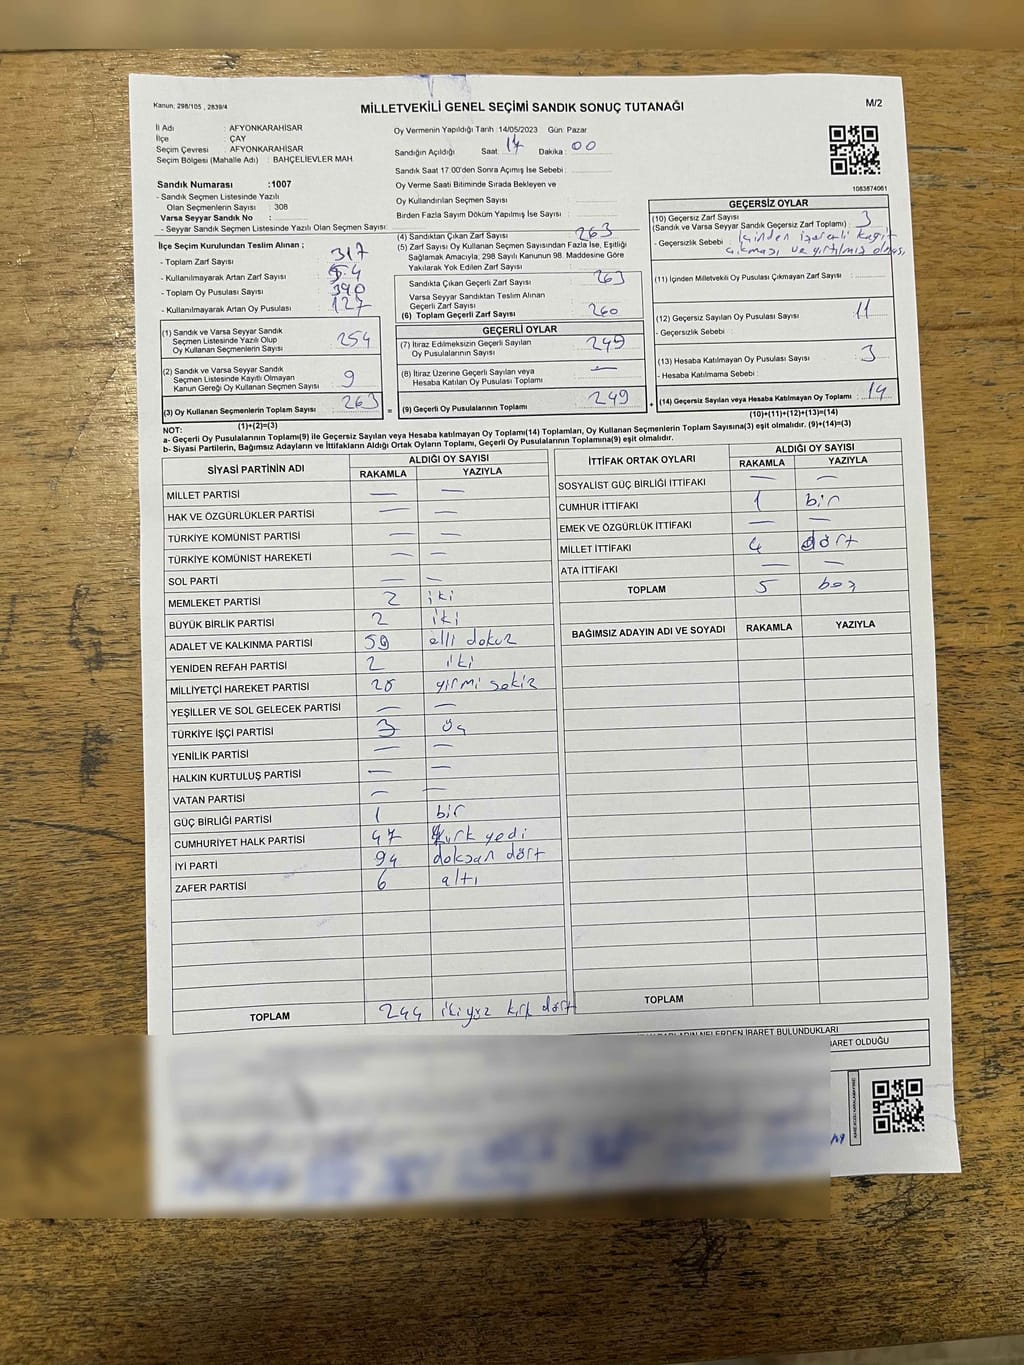 Kanun; 298/105 , 2839/4
MİLLETVEKİLİ GENEL SEÇİMİ SANDIK SONUÇ TUTANAĞI
M/2
İl Adı : AFYONKARAHİSAR
İlçe : ÇAY
Seçim Çevresi : AFYONKARAHİSAR
Seçim Bölgesi (Mahalle Adı) : BAHÇELİEVLER MAH.
Sandık Numarası :1007
- Sandık Seçmen Listesinde Yazılı
Olan Seçmenlerin Sayısı : 308
Varsa Seyyar Sandık No :
- Seyyar Sandık Seçmen Listesinde Yazılı Olan Seçmen Sayısı:
Oy Vermenin Yapıldığı Tarih 14/05/2023 Gün: Pazar
Sandığın Açıldığı Saat: 17 Dakika : 00
Sandık Saat 17:00'den Sonra Açımış İse Sebebi :
Oy Verme Saati Bitiminde Sırada Bekleyen ve
Oy Kullandırılan Seçmen Sayısı :
Birden Fazla Sayım Döküm Yapılmış İse Sayısı :
1083874061
İlçe Seçim Kurulundan Teslim Alınan ;
- Toplam Zarf Sayısı : 317
- Kullanılmayarak Artan Zarf Sayısı : 54
- Toplam Oy Pusulası Sayısı : 390
- Kullanılmayarak Artan Oy Pusulası : 127
(1) Sandık ve Varsa Seyyar Sandık
Seçmen Listesinde Yazılı Olup
Oy Kullanan Seçmenlerin Sayısı : 254
(2) Sandık ve Varsa Seyyar Sandık
Seçmen Listesinde Kayıtlı Olmayan
Kanun Gereği Oy Kullanan Seçmen Sayısı : 9
(3) Oy Kullanan Seçmenlerin Toplam Sayısı : 263
(4) Sandıktan Çıkan Zarf Sayısı : 263
(5) Zarf Sayısı Oy Kullanan Seçmen Sayısından Fazla İse, Eşitliği
Sağlamak Amacıyla, 298 Sayılı Kanunun 98. Maddesine Göre
Yakılarak Yok Edilen Zarf Sayısı :
Sandıkta Çıkan Geçerli Zarf Sayısı : 263
Varsa Seyyar Sandıktan Teslim Alınan
Geçerli Zarf Sayısı :
(6) Toplam Geçerli Zarf Sayısı : 260
GEÇERLİ OYLAR
(7) İtiraz Edilmeksizin Geçerli Sayılan
Oy Pusulalarının Sayısı : 249
(8) İtiraz Üzerine Geçerli Sayılan veya
Hesaba Katılan Oy Pusulası Toplamı : —
= (9) Geçerli Oy Pusulalarının Toplamı : 249 +
GEÇERSİZ OYLAR
(10) Geçersiz Zarf Sayısı : 3
(Sandık ve Varsa Seyyar Sandık Geçersiz Zarf Toplamı)
- Geçersizlik Sebebi : içinden işaretli kağıt
çıkması ve yırtılmış olması
(11) İçinden Milletvekili Oy Pusulası Çıkmayan Zarf Sayısı :
(12) Geçersiz Sayılan Oy Pusulası Sayısı : 11
- Geçersizlik Sebebi :
(13) Hesaba Katılmayan Oy Pusulası Sayısı : 3
- Hesaba Katılmama Sebebi :
(14) Geçersiz Sayılan veya Hesaba Katılmayan Oy Toplamı : 14
NOT: (1)+(2)=(3)
(10)+(11)+(12)+(13)=(14)
a- Geçerli Oy Pusulalarının Toplamı(9) ile Geçersiz Sayılan veya Hesaba katılmayan Oy Toplamı(14) Toplamları, Oy Kullanan Seçmenlerin Toplam Sayısına(3) eşit olmalıdır. (9)+(14)=(3)
b- Siyasi Partilerin, Bağımsız Adayların ve İttifakların Aldığı Ortak Oyların Toplamı, Geçerli Oy Pusulalarının Toplamına(9) eşit olmalıdır.
SİYASİ PARTİNİN ADI ALDIĞI OY SAYISI
RAKAMLA YAZIYLA
MİLLET PARTİSİ — —
HAK VE ÖZGÜRLÜKLER PARTİSİ — —
TÜRKİYE KOMÜNİST PARTİSİ — —
TÜRKİYE KOMÜNİST HAREKETİ — —
SOL PARTİ — —
MEMLEKET PARTİSİ 2 iki
BÜYÜK BİRLİK PARTİSİ 2 iki
ADALET VE KALKINMA PARTİSİ 59 elli dokuz
YENİDEN REFAH PARTİSİ 2 iki
MİLLİYETÇİ HAREKET PARTİSİ 28 yirmi sekiz
YEŞİLLER VE SOL GELECEK PARTİSİ — —
TÜRKİYE İŞÇİ PARTİSİ 3 üç
YENİLİK PARTİSİ — —
HALKIN KURTULUŞ PARTİSİ — —
VATAN PARTİSİ — —
GÜÇ BİRLİĞİ PARTİSİ 1 bir
CUMHURİYET HALK PARTİSİ 47 kırk yedi
İYİ PARTİ 94 doksan dört
ZAFER PARTİSİ 6 altı
TOPLAM 244 ikiyüz kırk dört
İTTİFAK ORTAK OYLARI ALDIĞI OY SAYISI
RAKAMLA YAZIYLA
SOSYALİST GÜÇ BİRLİĞİ İTTİFAKI — —
CUMHUR İTTİFAKI 1 bir
EMEK VE ÖZGÜRLÜK İTTİFAKI — —
MİLLET İTTİFAKI 4 dört
ATA İTTİFAKI — —
TOPLAM 5 beş
BAĞIMSIZ ADAYIN ADI VE SOYADI RAKAMLA YAZIYLA
TOPLAM
NELERDEN İBARET BULUNDUKLARI
İBARET OLDUĞU